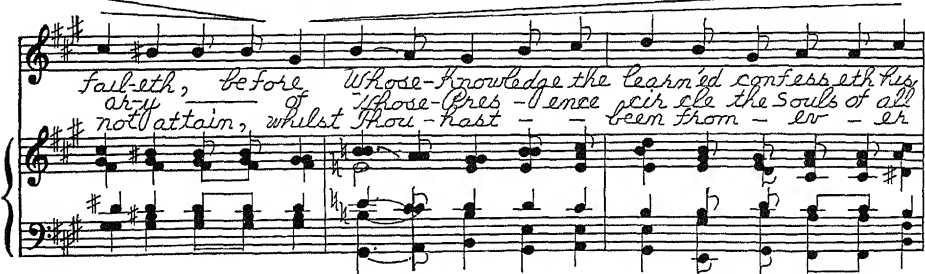 fail-eth, before Whose-Knowledge the learn'ed confess eth his
ar-y — of Whose-Pres - ence cir cle the Souls of all
not attain, whilst Thou-hast - - been from - ev - er